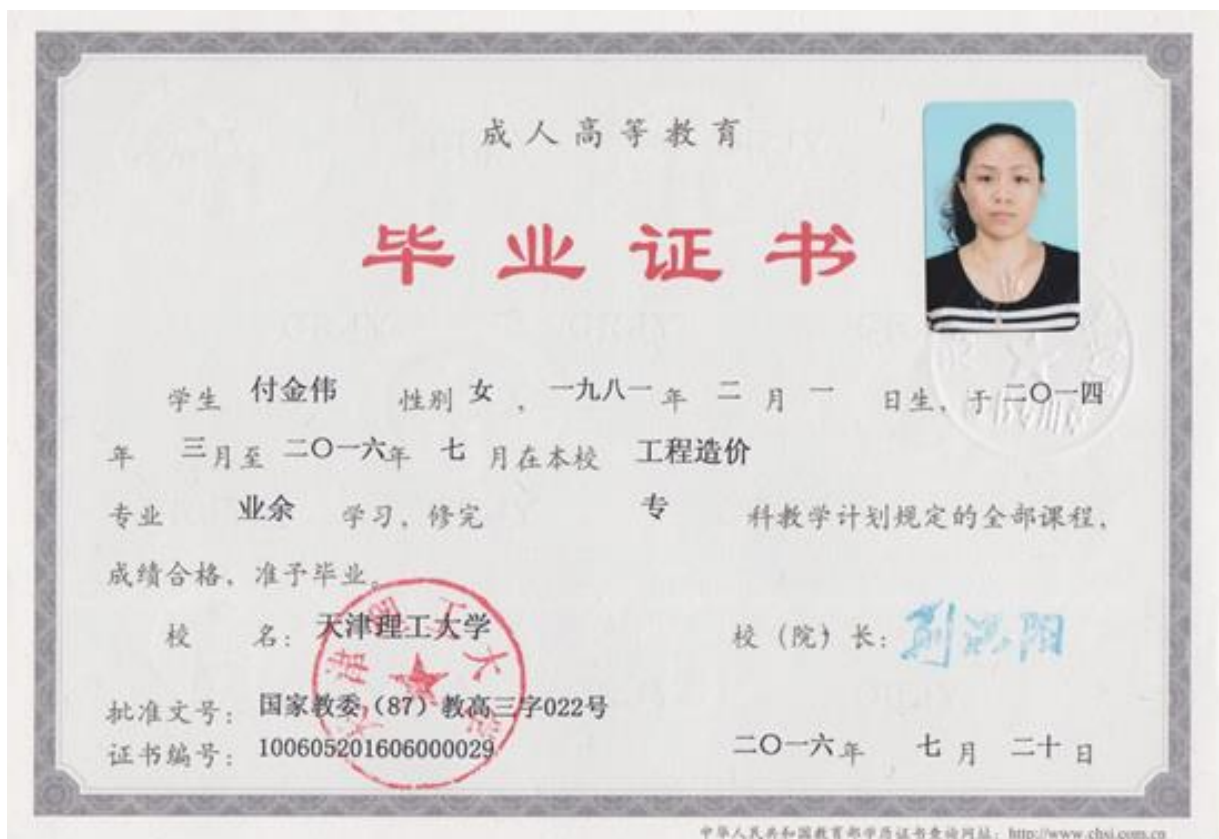 成人高等教育
毕业证书
学生 付金伟 性别 女 , 一九八一 年 二 月 一 日生, 于 二〇一四
年 三 月至 二〇一六 年 七 月在本校 工程造价
专业 业余 学习, 修完 专 科教学计划规定的全部课程,
成绩合格, 准予毕业。
校 名: 天津理工大学 校 (院) 长:
批准文号: 国家教委 (87) 教高三字022号
证书编号: 100605201606000029 二〇一六 年 七 月 二十 日
天津理工大学
中华人民共和国教育部学历证书查询网址: http://www.chsi.com.cn